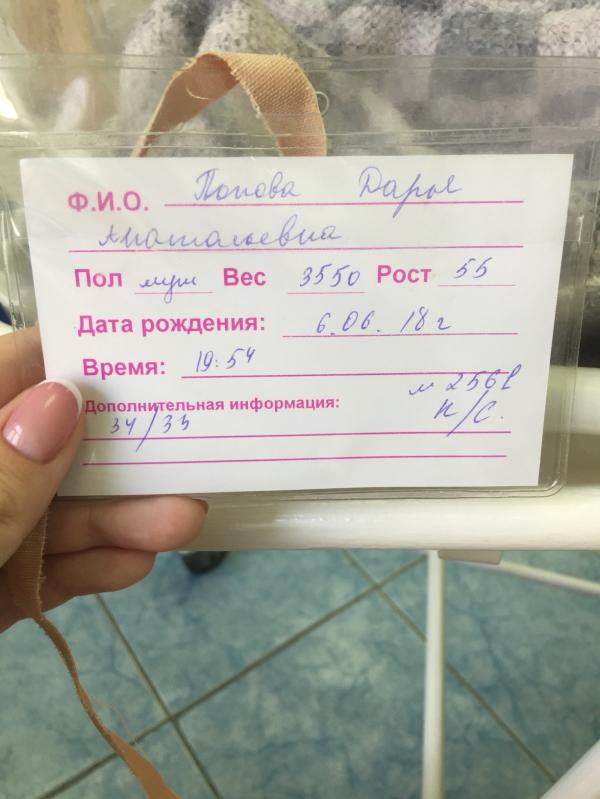 Ф.И.О. Попова Дарья
Анатольевна
Пол муж Вес 3550 Рост 55
Дата рождения: 6.06.18г
Время: 19:54
Дополнительная информация:
34/33
н/с.